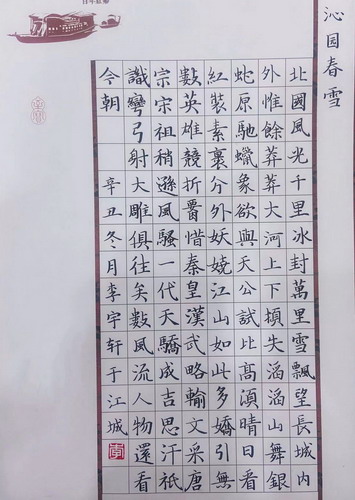 沁园春雪
北國風光千里冰封萬里雪飄望長城內
外惟餘莽莽大河上下頓失滔滔山舞銀
蛇原馳蠟象欲與天公試比高須晴日看
紅裝素裹分外妖嬈江山如此多嬌引無
數英雄競折腰惜秦皇漢武略輸文采唐
宗宋祖稍遜風騷一代天驕成吉思汗祇
識彎弓射大雕俱往矣數風流人物還看
今朝 辛丑冬月李宇軒于江城
李